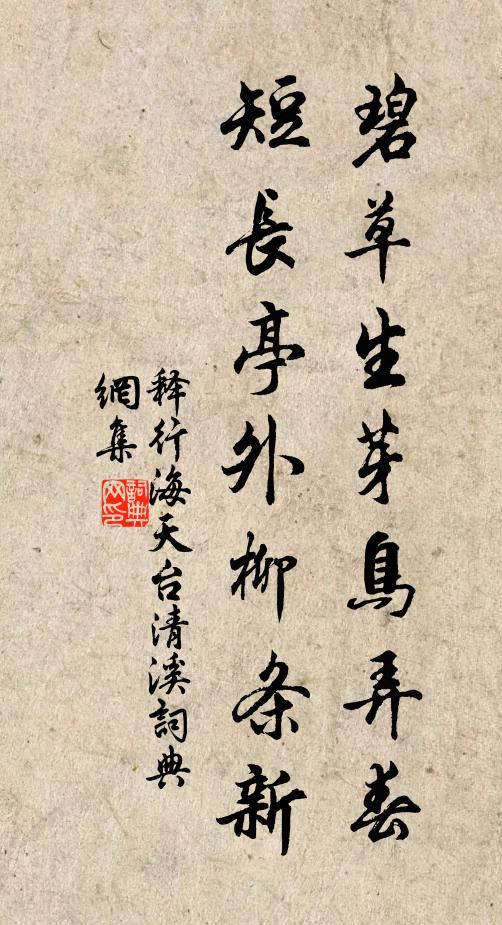 碧草生芽鳥弄春
短長亭外柳条新
释行海天台清溪詞典
網集
詞典网印